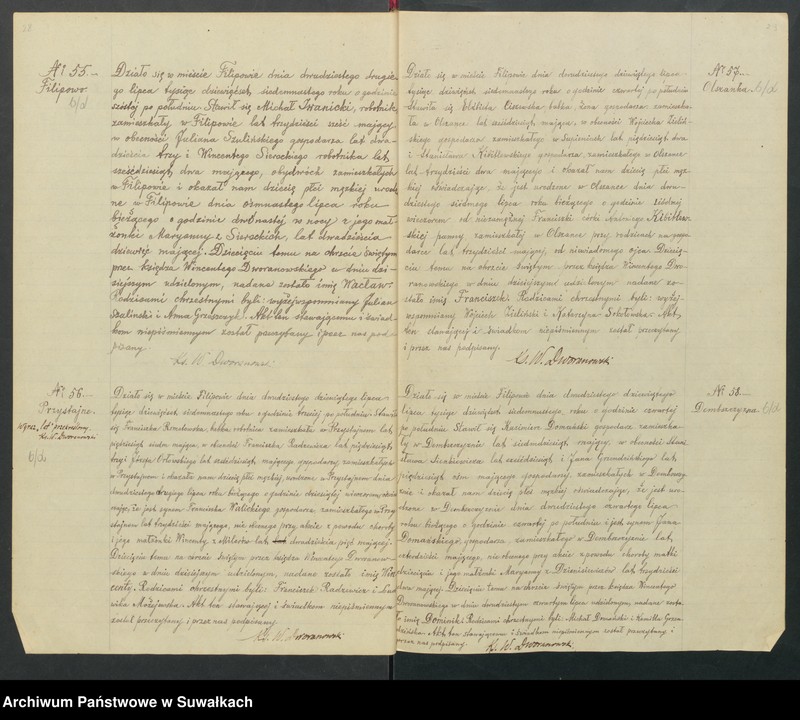 28
№ 55.
Filipowo
b/d
Działo się w mieście Filipowie dnia dwudziestego drugie-
go lipca tysiąc dziewięćset siedemnastego roku o godzinie
szóstej po południu. Stawił się Michał Iwanicki, robotnik
zamieszkały w Filipowie lat trzydzieści sześć mający
w obecności Juliana Szulińskiego gospodarza lat dwa-
dzieścia trzy i Wincentego Sierockiego robotnika lat
sześćdziesiąt dwa mającego, obydwóch zamieszkałych
w Filipowie i okazał nam dziecię płci męzkiej urodzo-
ne w Filipowie dnia ośmnastego lipca roku
bieżącego o godzinie dwónastej w nocy z jego mał-
żonki Maryanny z Sierockich, lat dwadzieścia
dziewięć mającej. Dziecięciu temu na chrzcie świętym
przez księdza Wincentego Dworanowskiego w dniu dzi-
siejszym udzielonym, nadane zostało imię Wacław.
Rodzicami chrzestnymi byli: wyżejwspomniany Julian
Szuliński i Anna. Akt ten stawającemu i świad-
kom niepiśmiennym został przeczytany i przez nas pod-
pisany.
Ks. W. Dworanowski
№ 56.
Przystajne.
Ks. W. Dworanowski
b/d
Działo się w mieście Filipowie dnia dwudziestego dziewiątego lipca
tysiąc dziewięćset siedemnastego roku o godzinie trzeciej po południu. Stawiła
się Franciszka babka, robotnica zamieszkała w Przystajnem lat
pięćdziesiąt siedm mająca, w obecności Franciszka Radziewicza lat pięćdziesiąt
trzy i Józefa Orłowskiego lat sześćdziesiąt, mającego gospodarzy zamieszkałych
w Przystajnem i okazała nam dziecię płci męzkiej, urodzone w Przystajnem dnia
dwudziestego drugiego lipca roku bieżącego o godzinie dziesiątej wieczorem oświad-
czając, że jest synem Franciszka Walickiego gospodarza, zamieszkałego w Przy-
stajnem lat trzydzieści mającego, nie obecnego przy akcie z powodu choroby
i jego małżonki Wincenty z Milerów lat dwadzieścia pięć mającej.
Dziecięciu temu na chrzcie świętym przez księdza Wincentego Dworanow-
skiego w dniu dzisiejszym udzielonym, nadane zostało imię Win-
centy. Rodzicami chrzestnymi byli: Franciszek Radziewicz i Lud-
wika Możejewska. Akt ten stawającej i świadkom niepiśmiennym
został przeczytany i przez nas podpisany.
Ks. W. Dworanowski
№ 57.
Olszanka b/d
Działo się w mieście Filipowie dnia dwudziestego dziewiątego lipca
tysiąc dziewięćset siedemnastego roku o godzinie czwartej po południu
Stawiła się Elżbieta babka, żona gospodarza zamieszka-
ła w Olszance lat sześćdziesiąt mająca, w obecności Wojciecha Zieliń-
skiego gospodarza zamieszkałego w lat pięćdziesiąt dwa
i Stanisława Kibitlewskiego gospodarza zamieszkałego w Olszance
lat trzydzieści dwa mającego i okazała nam dziecię płci męz-
kiej oświadczając, że jest urodzone w Olszance dnia dwu-
dziestego siódmego lipca roku bieżącego o godzinie siódmej
wieczorem od niezamężnej Franciszki córki Kibitlew-
skiej panny zamieszkałej w Olszance przy rodzicach na gospo-
darce lat trzydzieści mającej, od niewiadomego ojca. Dziecię-
ciu temu na chrzcie świętym przez księdza Wincentego Dwo-
ranowskiego w dniu dzisiejszym udzielonym nadane zo-
stało imię Franciszek. Rodzicami chrzestnymi byli: wyżej-
wspomniany Wojciech Zieliński i Katarzyna Sobolewska. Akt
ten stawającej i świadkom niepiśmiennym został przeczytany
i przez nas podpisany.
Ks. W. Dworanowski
№ 58.
b/d
Działo się w mieście Filipowie dnia dwudziestego dziewiątego
lipca tysiąc dziewięćset siedemnastego, roku o godzinie czwartej
po południu. Stawił się Kazimierz Domański gospodarz zamieszka-
ły w lat siedmdziesiąt mający, w obecności Stani-
sława lat sześćdziesiąt i Jana lat
pięćdziesiąt ośm mającego gospodarzy, zamieszkałych w
i okazał nam dziecię płci męzkiej oświadczając, że jest uro-
dzone w dnia dwudziestego czwartego lipca
roku bieżącego o godzinie czwartej po południu i jest synem Jana
Domańskiego gospodarza zamieszkałego w lat
czterdzieści mającego, nie obecnego przy akcie z powodu choroby matki
dziecięcia i jego małżonki Maryanny z lat trzydzieści
mającej. Dziecięciu temu na chrzcie świętym przez księdza Wincentego
Dworanowskiego w dniu dwudziestym czwartym lipca udzielonym, nadane zosta-
ło imię Dominik. Rodzicami chrzestnymi byli: Michał Domański i Kamilla
Akt ten stawającemu i świadkom niepiśmiennym został przeczytany i
przez nas podpisany.
Ks. W. Dworanowski
Archiwum Państwowe w Suwałkach